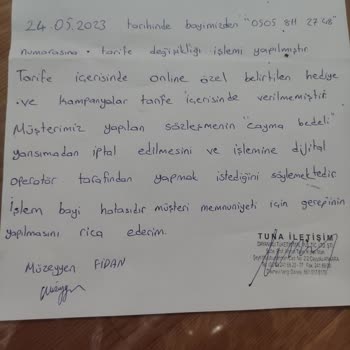 24.05.2023 tarihinde bayimizden "0505 811 27 48"
numarasına tarife değişikliği işlemi yapılmıştır
Tarife içerisinde online özel belirtilen hediye
ve kampanyalar tarife içerisinde verilmemiştir
Müşterimiz yapılan sözleşmenin "cayma bedeli"
yansımadan iptal edilmesini ve işlemine dijital
operatör tarafından yapmak istediğini söylemektedir
İşlem bayi hatasıdır müşteri memnuniyeti için gereğinin
yapılmasını rica ederim.
TUNA İLETİŞİM
Müzeyyen FİDAN